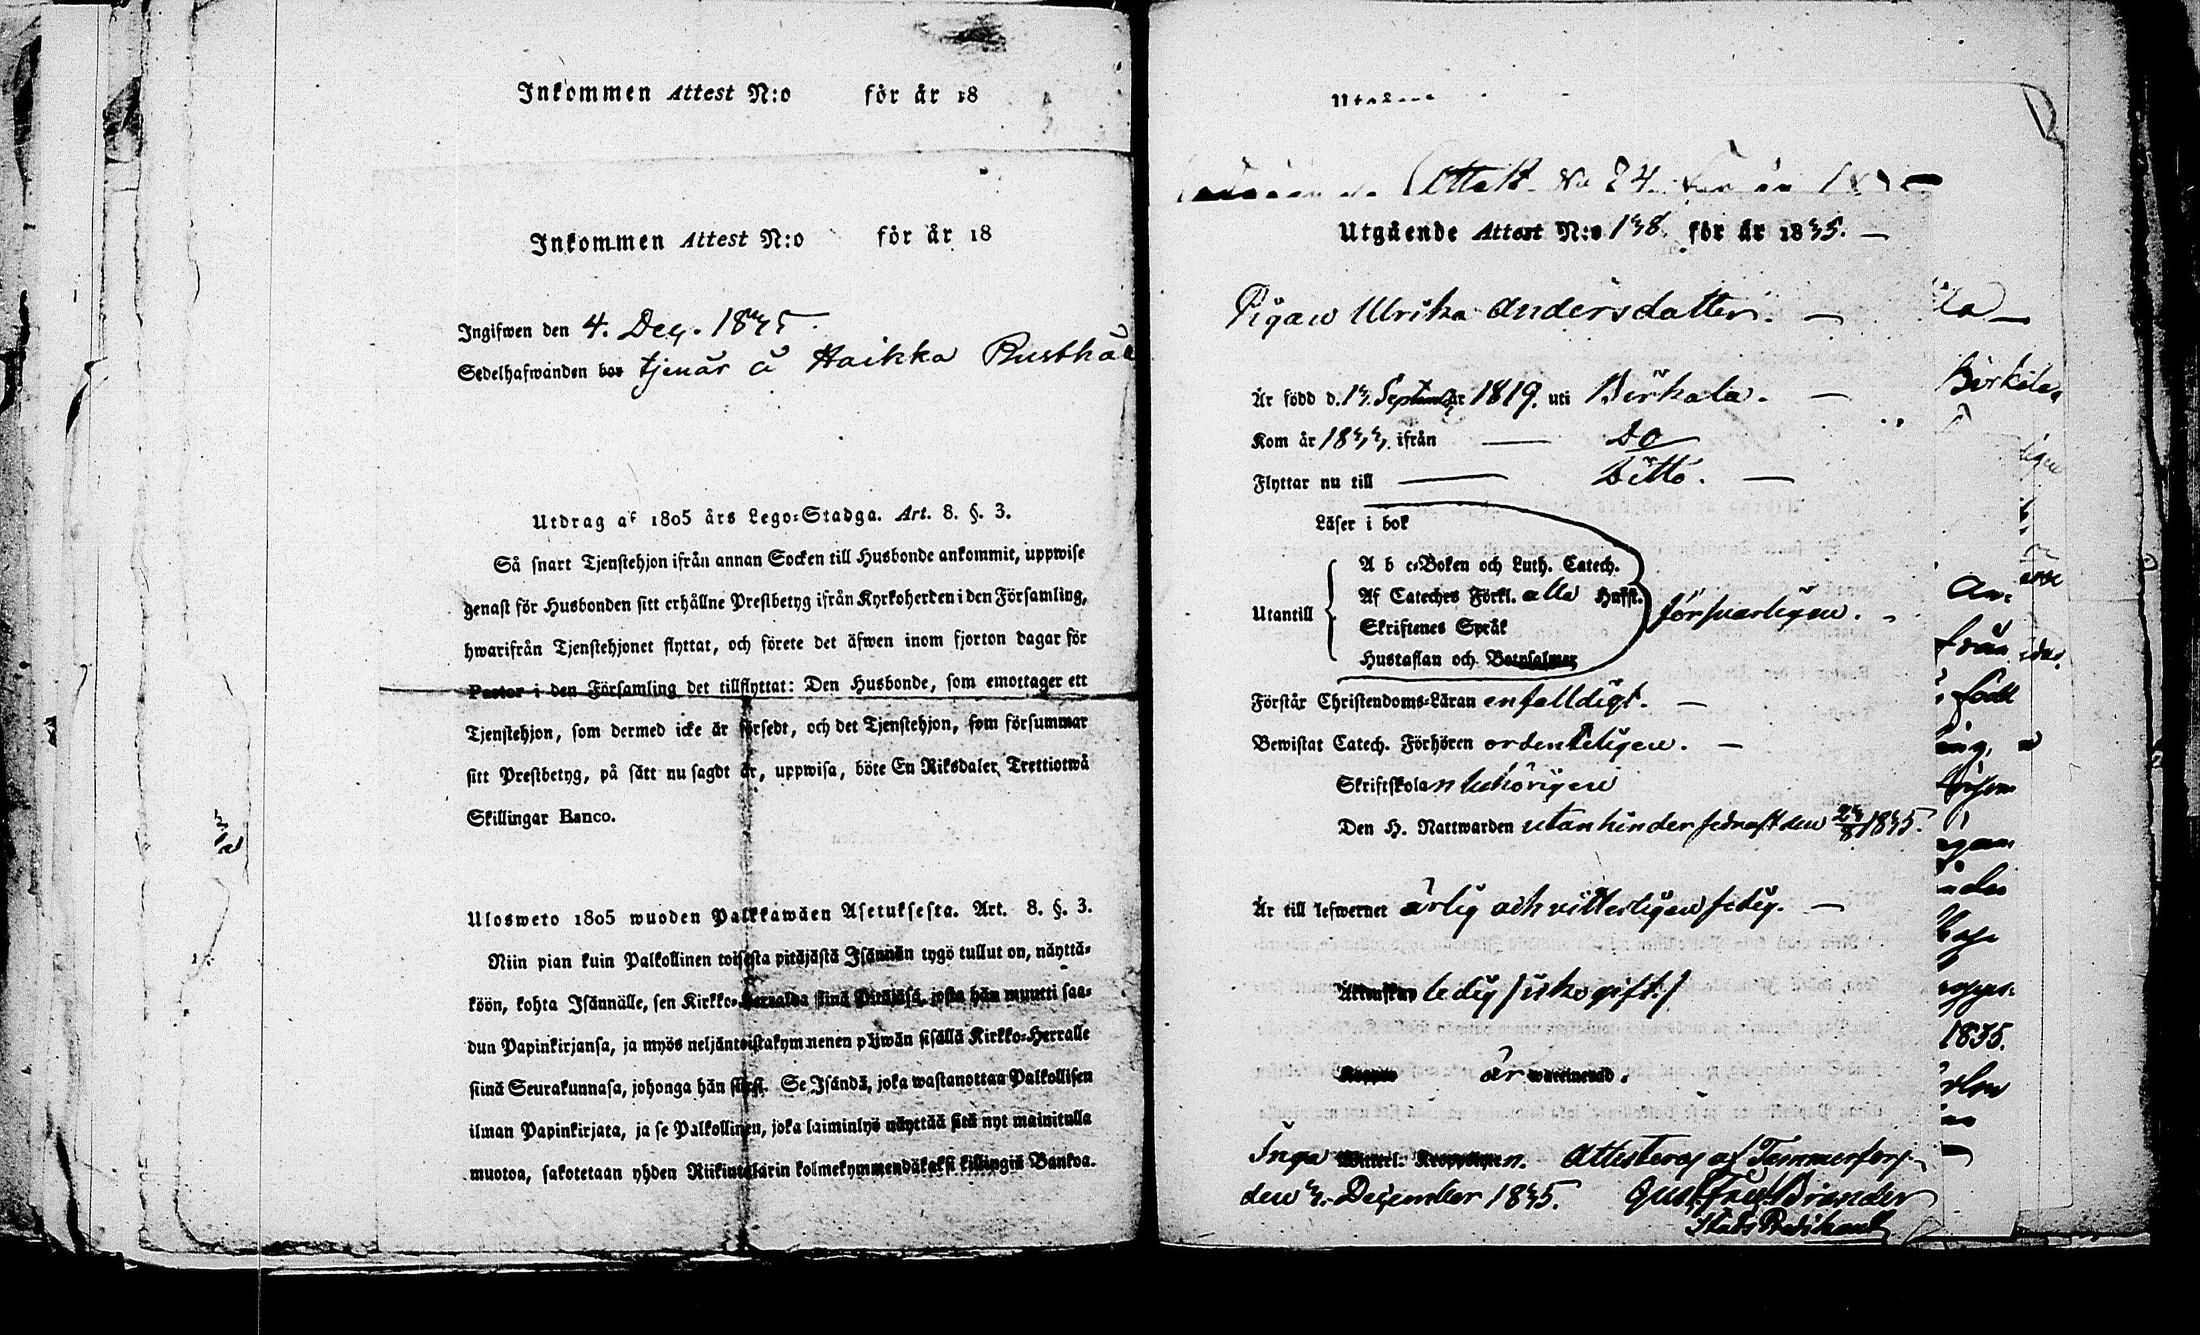 Inkommen Attest N:o för år 18
Inkommen Attest N:o för år 18
Ingifwen den 4. Dec. 1835.
Sedelhafwanden bor tjenar å Haikka Rusthål
Utdrag af 1805 års Lego-Stadga. Art. 8. §. 3.
Så snart Tjenstehjon ifrån annan Socken till Husbonde ankommit, uppwise
genast för Husbonden sitt erhållne Prestbetyg ifrån Kyrkoherden i den Församling,
hwarifrån Tjenstehjonet flyttat, och förete det äfwen inom fjorton dagar för
Pastor i den Församling det tillflyttat: Den Husbonde, som emottager ett
Tjenstehjon, som dermed icke är försedt, och det Tjenstehjon, som försummar
sitt Prestbetyg, på sätt nu sagdt är, uppwisa, böte En Riksdaler Trettiotwå
Skillingar Banco.
Ulosweto 1805 wuoden Palkkawäen Asetuksesta. Art. 8. §. 3.
Niin pian kuin Palkollinen toisesta pitäjästä Isännän tygö tullut on, näyttä-
köön, kohta Isännälle, sen Kirkko-Herralda siinä Pitäjäsä, josta hän muutti saa-
dun Papinkirjansa, ja myös neljäntoistakymmenen päiwän sisällä Kirkko-Herralle
siinä Seurakunnasa, johonga hän siirsi. Se Isändä, joka wastanottaa Palkollisen
ilman Papinkirjata, ja se Palkollinen, joka laiminlyö näyttää sitä nyt mainitulla
muotoa, sakotetaan yhden Riikintalarin kolmekymmendäkaksi killingiä Bankoa.
Attest No 24 för år
Utgående Attest N:o 138. för år 1835.
Pigan Ulrika Andersdatter.
Är född d. 13. September 1819. uti Birkala.
Kom år 1833. ifrån Do
Flyttar nu till Ditto.
Läser i bok
A b c-Boken och Luth. Catech.
Utantill Af Cateches Förkl. alla Hufst. försvarligen.
Skriftenes Språk
Hustaflan och Botpsalmer
Förstår Christendoms-Läran enfalldigt.
Bewistat Catech. Förhören ordenteligen.
Skriftskolan behörigen
Den H. Nattwarden utan hinder sednast den 23/8 1835.
Är till lefwernet ärlig och vitterligen fedig.
Äktenskap ledig /: icke gift :/
Koppor är waccinerad.
Inga Wittel. Kroppslyten. Attesteras af Tammerfors
den 3. December 1835. Gust. Fred. Brander
Stads Predikant